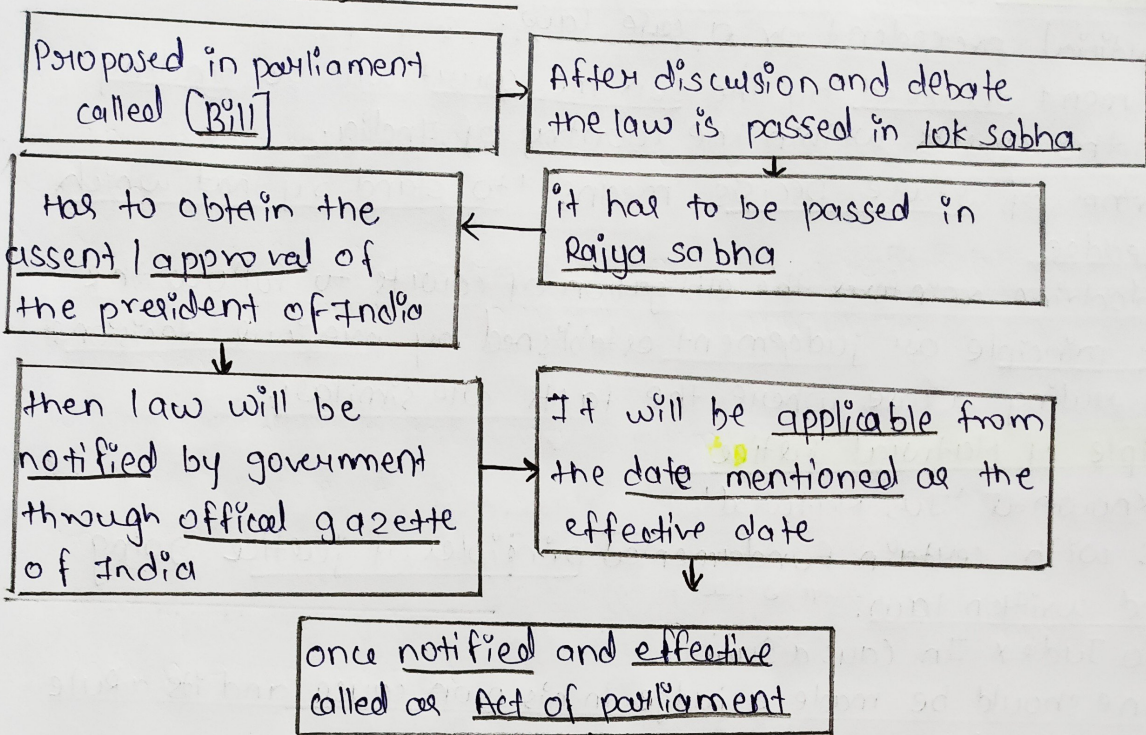 Proposed in parliament
called [Bill]
After discusion and debate
the law is passed in lok sabha
it has to be passed in
Rajya sabha
Has to obtain the
assent / approval of
the president of India
then law will be
notified by government
through offical gazette
of India
It will be applicable from
the date mentioned as the
effective date
once notified and effective
called as Act of parliament